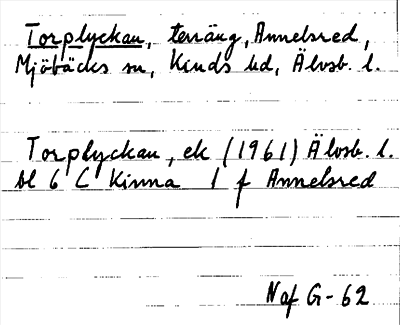 Torplyckan, terräng, Annelsred,
Mjöbäcks sn, Kinds hd, Älvsb. l.
Torplyckan, ek (1961) Älvsb. l.
bl 6 C Kinna 1 f Annelsred
Naf G-62